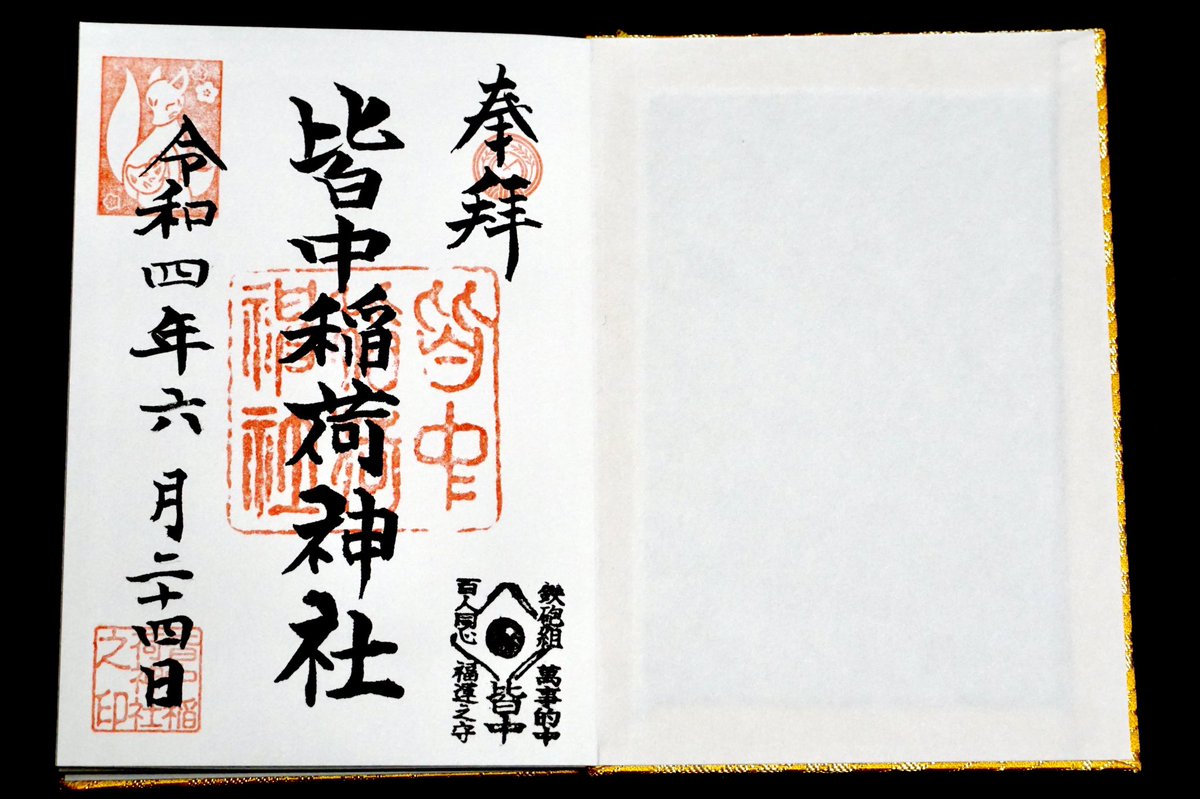 奉拝
皆中稲荷神社
令和四年六月二十四日
皆中
稲荷
神社
鉄砲組 萬事的中
皆中
百人同心 福運之守
皆中稲
荷神社
之印